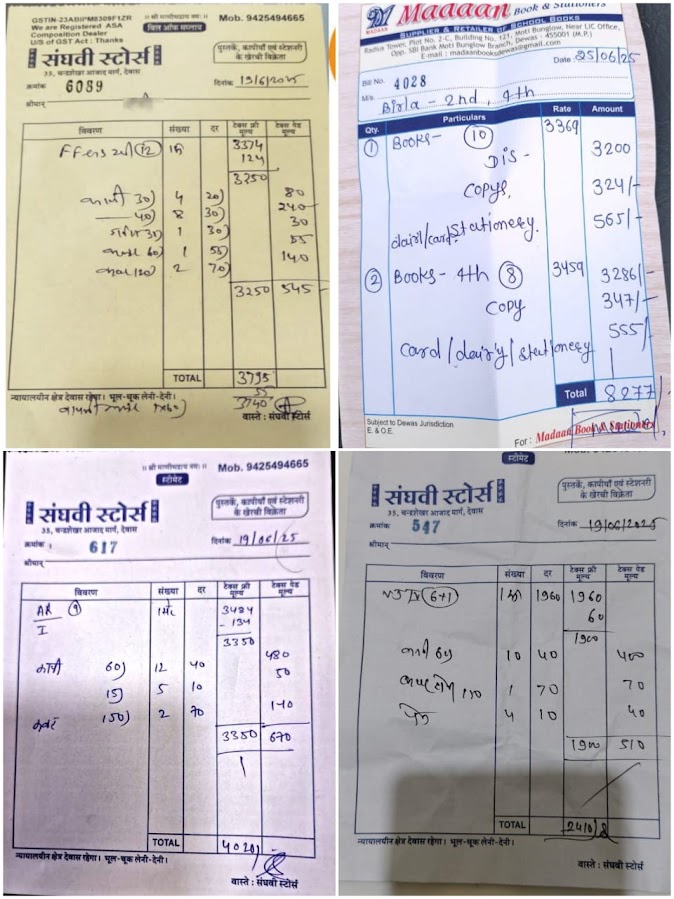 GSTIN-23ABIPM8309F1ZR
We are Registered ASA
Composition Dealer
U/S of GST Act : Thanks
Mob. 9425494665
बिल ऑफ सप्लाय
संघवी स्टोर्स
पुस्तकें, कापीयाँ एवं स्टेशनरी
के खेरची विक्रेता
35, चन्द्रशेखर आजाद मार्ग, देवास
क्रमांक 6089
दिनांक 19/6/2025
श्रीमान्
विवरण संख्या दर टेक्स फ्री मूल्य टेक्स पेड मूल्य
12 3374
124
3250
कापी 30) 4 20) 80
40) 8 30) 240
1 30) 30
60) 1 55) 55
120) 2 70) 140
3250 545
TOTAL 3795
55
3740
न्यायालयीन क्षेत्र देवास रहेगा। भूल-चूक लेनी-देनी।
वास्ते : संघवी स्टोर्स
MADAAN
Madaan Book & Stationers
SUPPLIER & RETAILER OF SCHOOL BOOKS
Radha Tower, Plot No. 2-C, Building No. 121, Moti Bunglow, Near LIC Office,
Opp. SBI Bank Moti Bunglow Branch, Dewas - 455001 (M.P.)
E-mail : madaanbooksdewas@gmail.com
Date 25/06/25
Bill No. 4028
M/s. Birla - 2nd, 4th
Qty. Particulars Rate Amount
1 Books - 10 3369
Dis - 3200
Copys, 324/-
dairi/card stationery. 565/-
2 Books - 4th 8 3459 3286/-
Copy 347/-
Card / dairy / stationery 555/-
Total 8277/-
Subject to Dewas Jurisdiction
E. & O.E.
For : Madaan Book & Stationers
।। श्री माणीभद्राय नमः ।।
Mob. 9425494665
स्टीमेट
संघवी स्टोर्स
पुस्तकें, कापीयाँ एवं स्टेशनरी
के खेरची विक्रेता
35, चन्द्रशेखर आजाद मार्ग, देवास
क्रमांक 617
दिनांक 19/06/25
श्रीमान्
विवरण संख्या दर टेक्स फ्री मूल्य टेक्स पेड मूल्य
9 3484
I - 134
3350
कापी 60) 12 40 480
15) 5 10 50
कवर 150) 2 70 140
3350 670
TOTAL 4020/
न्यायालयीन क्षेत्र देवास रहेगा। भूल-चूक लेनी-देनी।
वास्ते : संघवी स्टोर्स
स्टीमेट
संघवी स्टोर्स
पुस्तकें, कापीयाँ एवं स्टेशनरी
के खेरची विक्रेता
35, चन्द्रशेखर आजाद मार्ग, देवास
क्रमांक 547
दिनांक 19/06/2025
श्रीमान्
विवरण संख्या दर टेक्स फ्री मूल्य टेक्स पेड मूल्य
6+1 1960 1960
60
1900
कापी 10 40 400
110 1 70 70
पेन 4 10 40
1900 510
TOTAL 2410/
न्यायालयीन क्षेत्र देवास रहेगा। भूल-चूक लेनी-देनी।
वास्ते : संघवी स्टोर्स